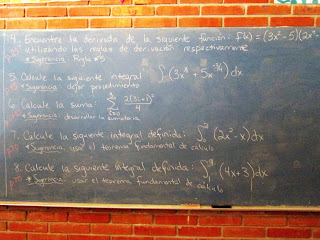 4. Encuentre la derivada de la siguiente función: f(x) = (3x²-5)(2x⁴-
utilizando las reglas de derivación respectivamente
* Sugerencia: Regla #5
5. Calcule la siguiente integral ∫(3x⁸ + 5x^-3/4) dx
* Sugerencia: dejar procedimiento
6. Calcule la suma: Σ 2(3i+1)²/4
* Sugerencia: desarrollar la sumatoria
7. Calcule la siguiente integral definida: ∫ (2x²-x) dx
* Sugerencia: usar el teorema fundamental de cálculo
8. Calcule la siguiente integral definida: ∫ (4x+3) dx
* Sugerencia: usar el teorema fundamental de cálculo